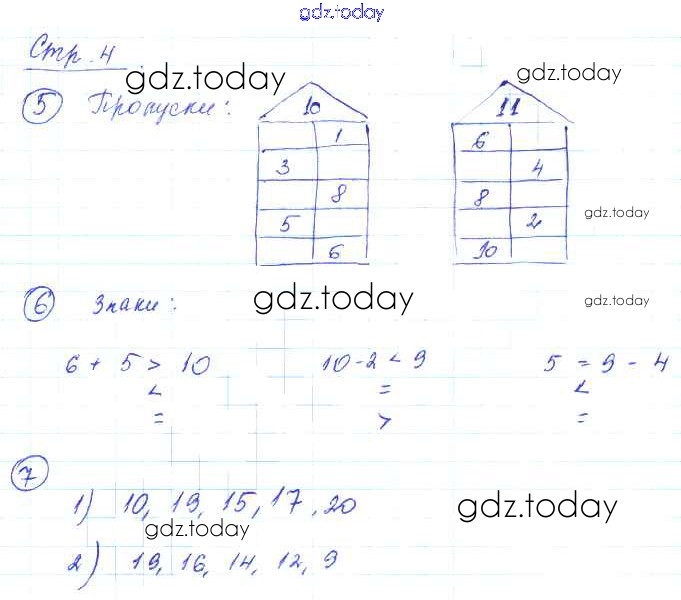 gdz.today
Стр. 4
gdz.today
gdz.today
5 Пропуски:
10
11
1
6
3
4
8
8
gdz.today
5
2
6
10
6 Знаки:
gdz.today
gdz.today
6 + 5 > 10 10-2 < 9 5 = 9 - 4
< = <
= > =
7
1) 10, 19, 15, 17, 20
gdz.today
gdz.today
2) 19, 16, 14, 12, 9